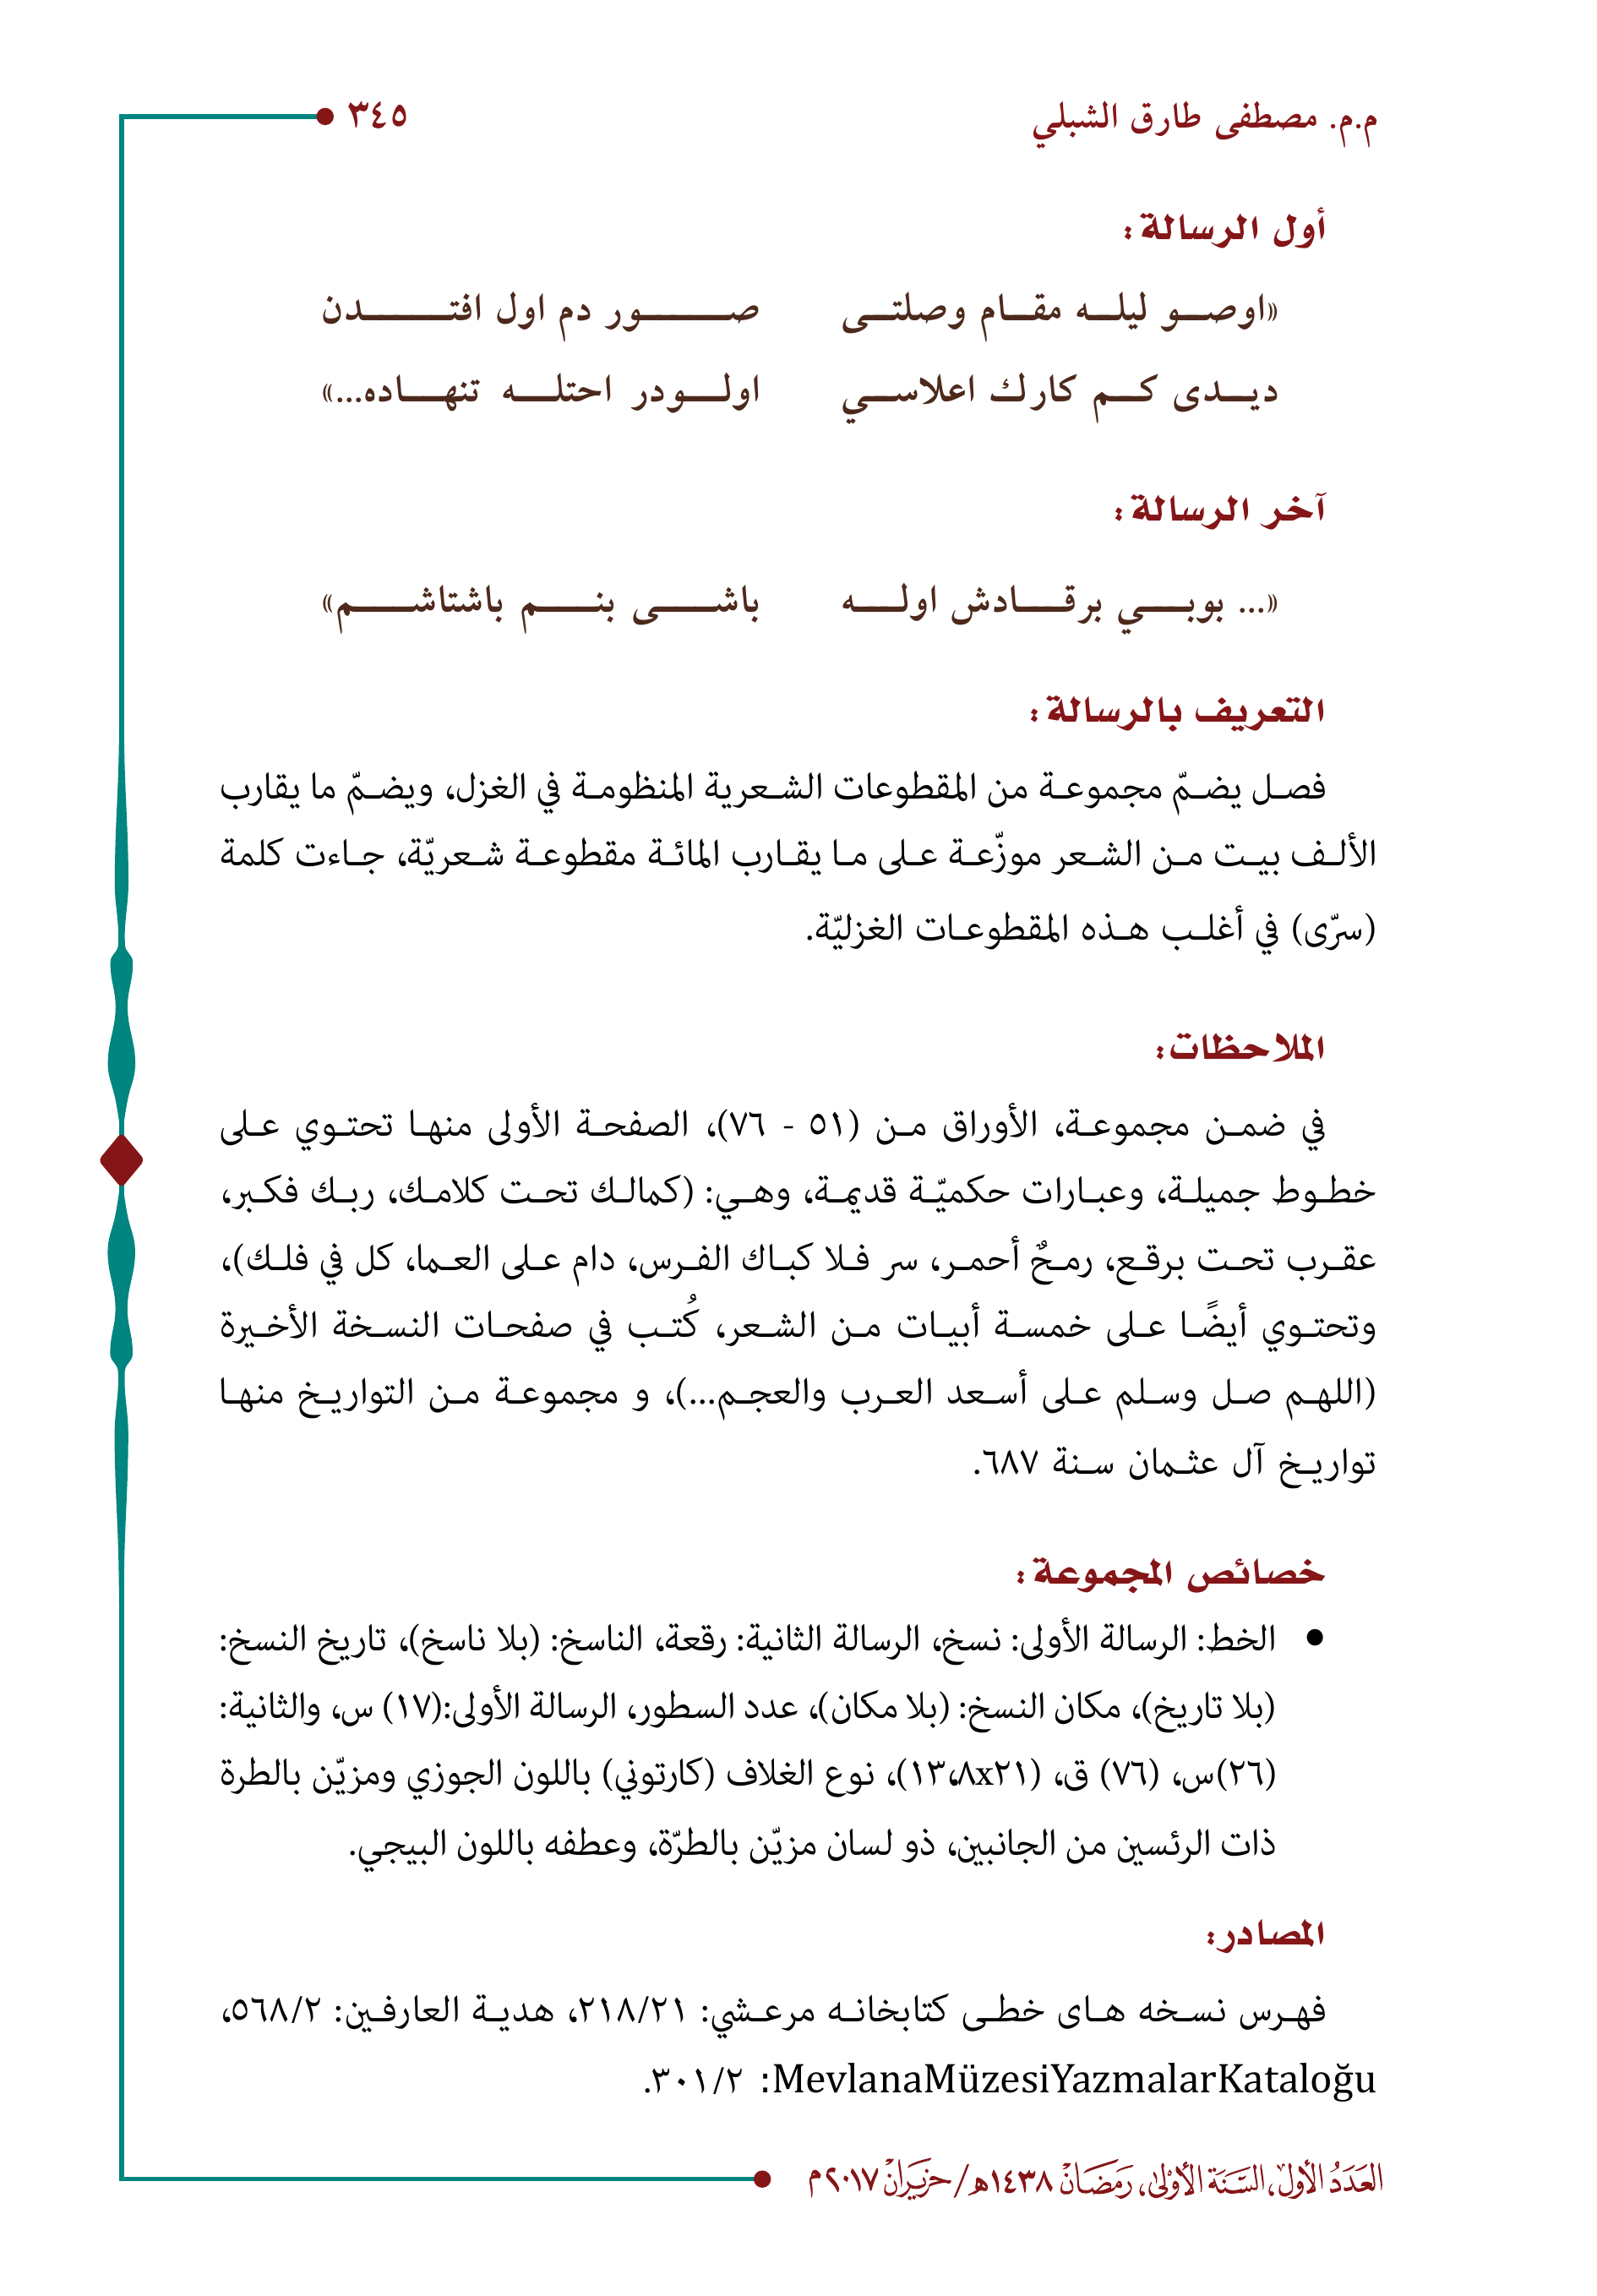 م.م. مصطفى طارق الشبلي
٣٤٥
أول الرسالة:
«اوصو ليله مقام وصلتى صور دم اول افتدن
ديدى كم كارك اعلاسي اولودر احتله تنهاده...»
آخر الرسالة:
«... بوبي برقادش اوله باشى بنم باشتاشم»
التعريف بالرسالة:
فصل يضمّ مجموعة من المقطوعات الشعرية المنظومة في الغزل، ويضمّ ما يقارب
الألف بيت من الشعر موزّعة على ما يقارب المائة مقطوعة شعريّة، جاءت كلمة
(سرّى) في أغلب هذه المقطوعات الغزليّة.
الملاحظات:
في ضمن مجموعة، الأوراق من (٥١ - ٧٦)، الصفحة الأولى منها تحتوي على
خطوط جميلة، وعبارات حكميّة قديمة، وهي: (كمالك تحت كلامك، ربك فكبر،
عقرب تحت برقع، رمحٌ أحمر، سر فلا كباك الفرس، دام على العما، كل في فلك)،
وتحتوي أيضًا على خمسة أبيات من الشعر، كُتب في صفحات النسخة الأخيرة
(اللهم صل وسلم على أسعد العرب والعجم...)، و مجموعة من التواريخ منها
تواريخ آل عثمان سنة ٦٨٧.
خصائص المجموعة:
● الخط: الرسالة الأولى: نسخ، الرسالة الثانية: رقعة، الناسخ: (بلا ناسخ)، تاريخ النسخ:
(بلا تاريخ)، مكان النسخ: (بلا مكان)، عدد السطور، الرسالة الأولى:(١٧) س، والثانية:
(٢٦)س، (٧٦) ق، (١٣،٨x٢١)، نوع الغلاف (كارتوني) باللون الجوزي ومزيّن بالطرة
ذات الرئسين من الجانبين، ذو لسان مزيّن بالطرّة، وعطفه باللون البيجي.
المصادر:
فهرس نسخه هاى خطى كتابخانه مرعشي: ٢١٨/٢١، هدية العارفين: ٥٦٨/٢،
MevlanaMüzesiYazmalarKataloğu: ٣٠١/٢.
العَدَدُ الأولُ،السَّنَة الأوْلىٰ، رَمَضَانْ ١٤٣٨هـ/حزيرانْ ٢٠١٧م